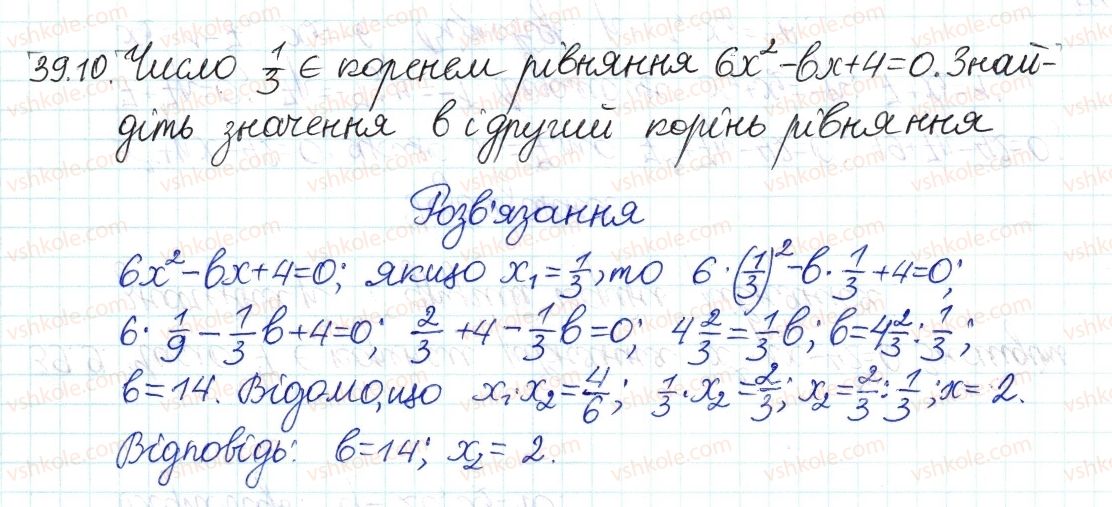 39.10. Число 1/3 є коренем рівняння 6x² - bx + 4 = 0. Знай-
діть значення b і другий корінь рівняння
Розв'язання
6x² - bx + 4 = 0; якщо x₁ = 1/3, то 6 · (1/3)² - b · 1/3 + 4 = 0;
6 · 1/9 - 1/3 b + 4 = 0; 2/3 + 4 - 1/3 b = 0; 4 2/3 = 1/3 b; b = 4 2/3 : 1/3;
b = 14. Відомо, що x₁ · x₂ = 4/6; 1/3 · x₂ = 2/3; x₂ = 2/3 : 1/3; x = 2.
Відповідь: b = 14; x₂ = 2.